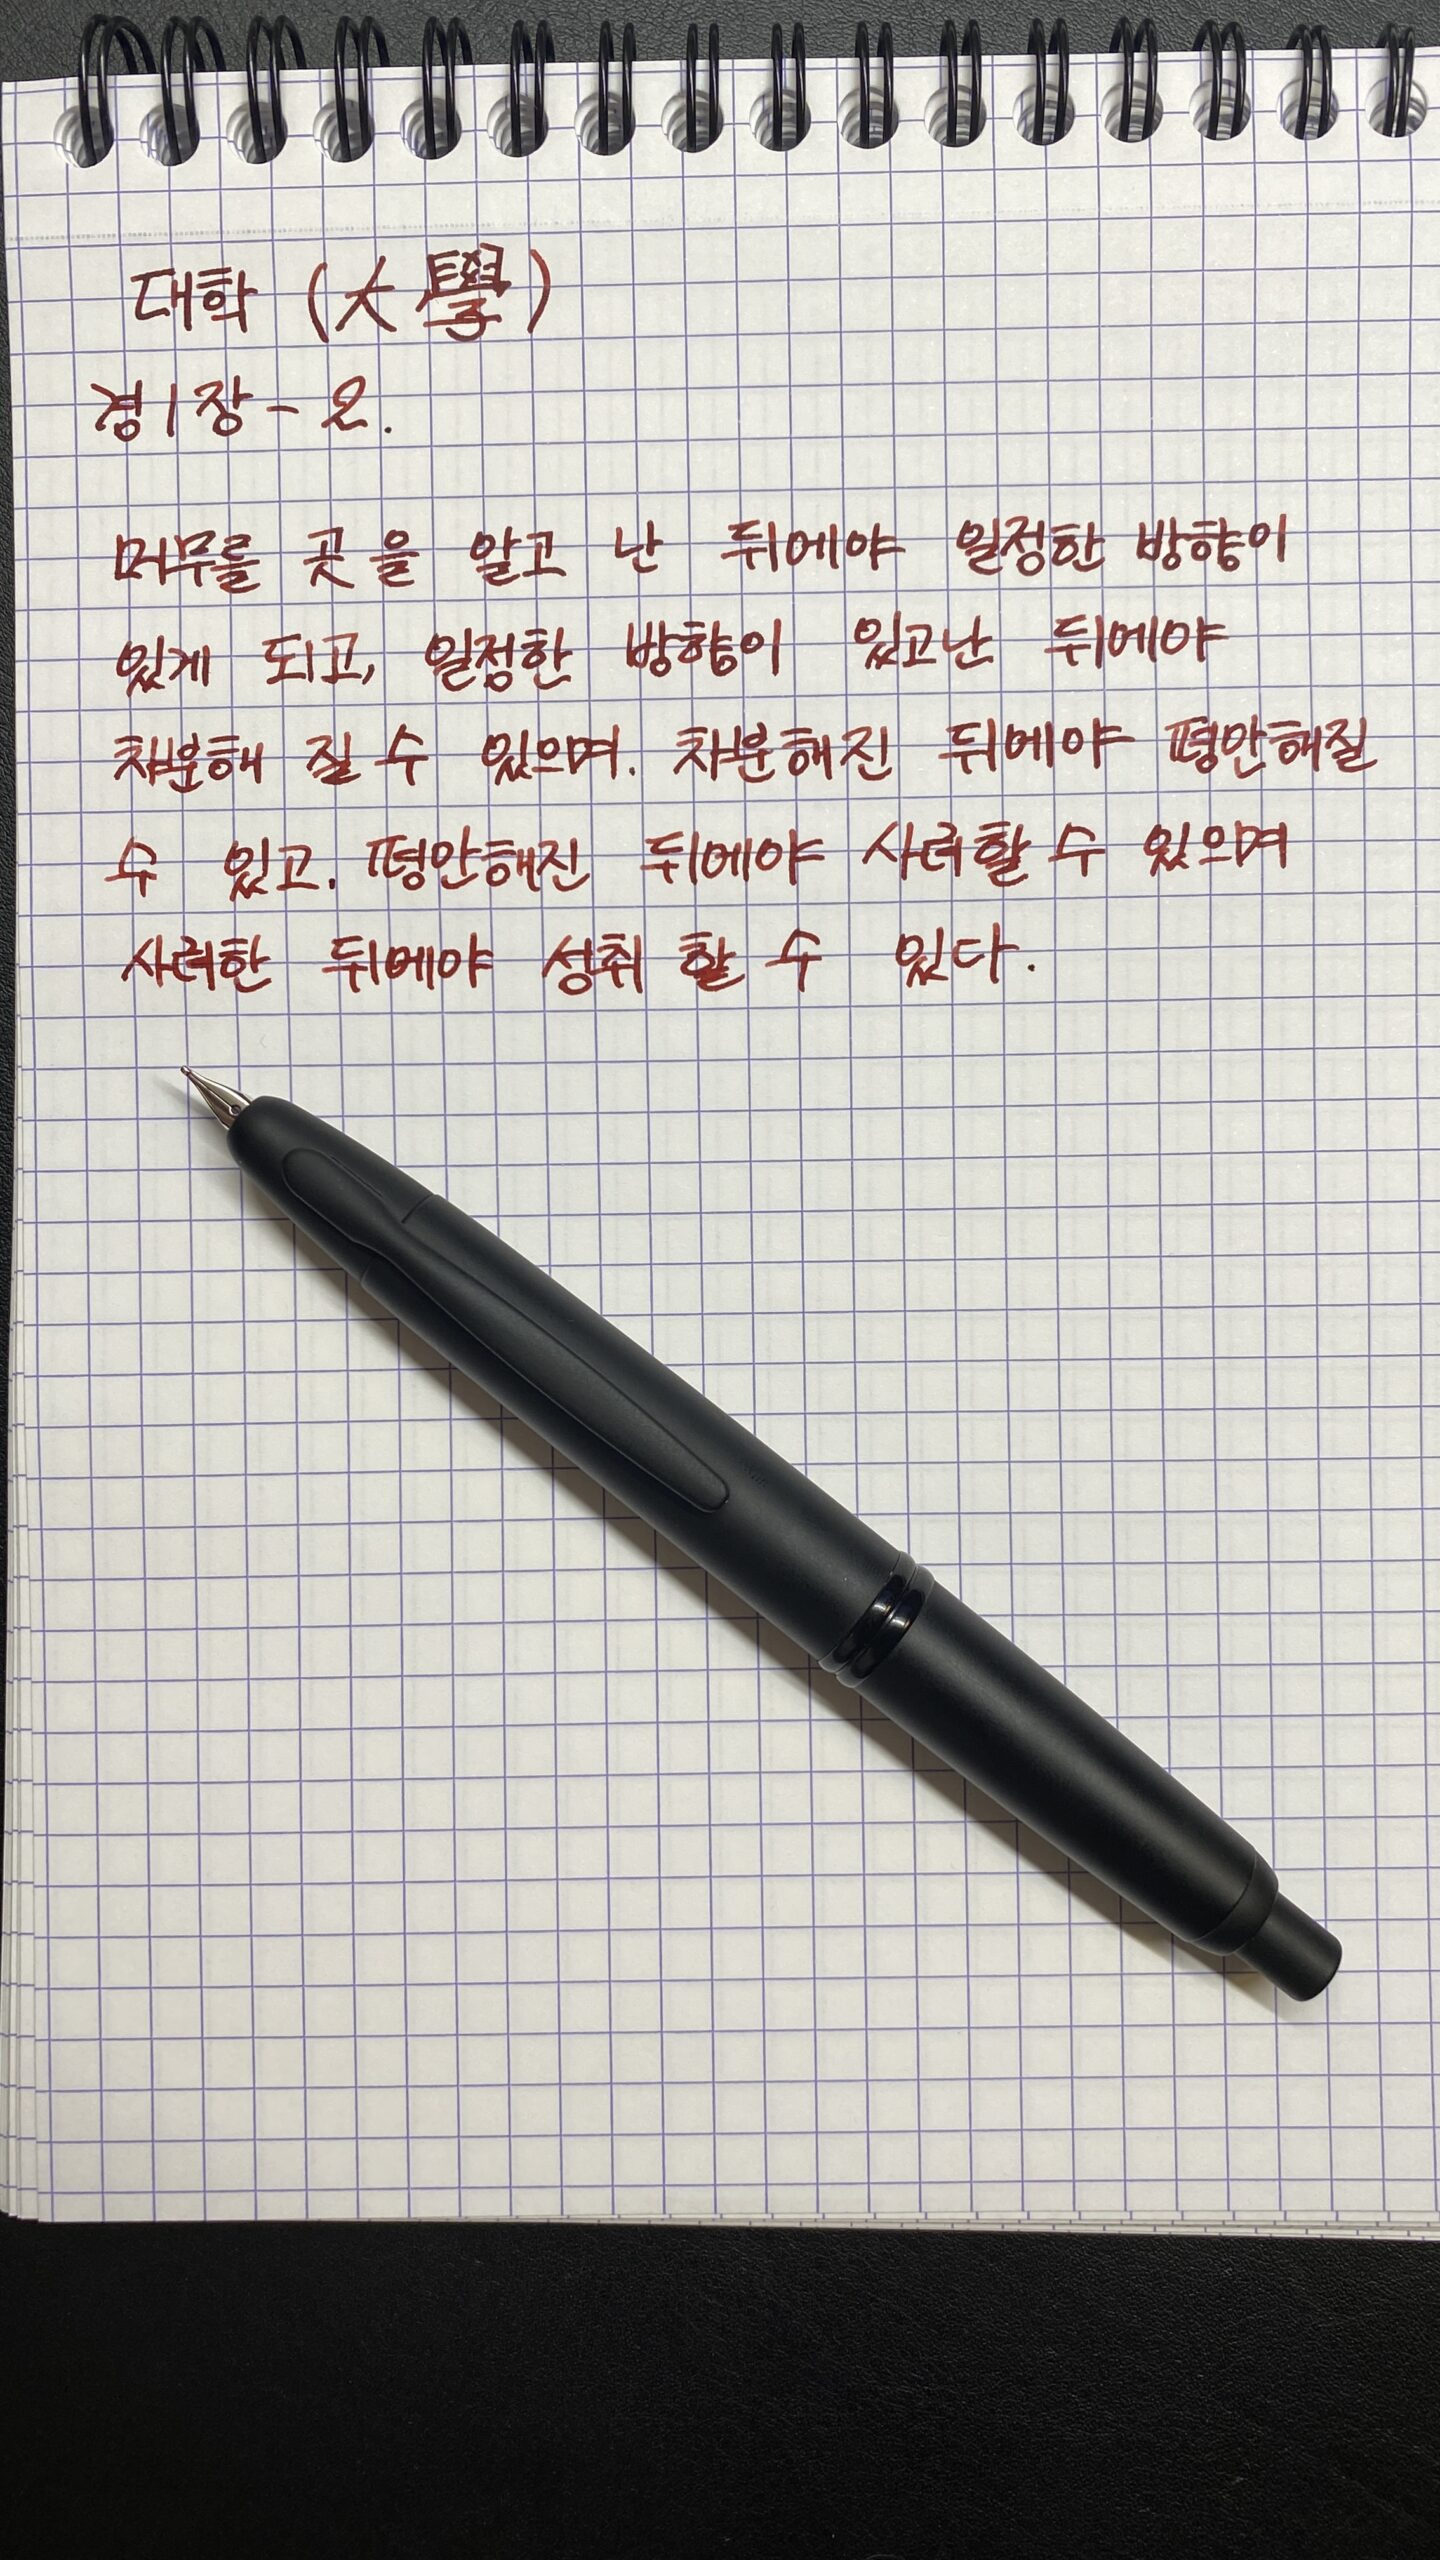 대학 (大學)
경1장 - 2.
머무를 곳을 알고 난 뒤에야 일정한 방향이
있게 되고, 일정한 방향이 있고난 뒤에야
차분해 질 수 있으며. 차분해진 뒤에야 평안해질
수 있고. 평안해진 뒤에야 사려할 수 있으며
사려한 뒤에야 성취 할 수 있다.